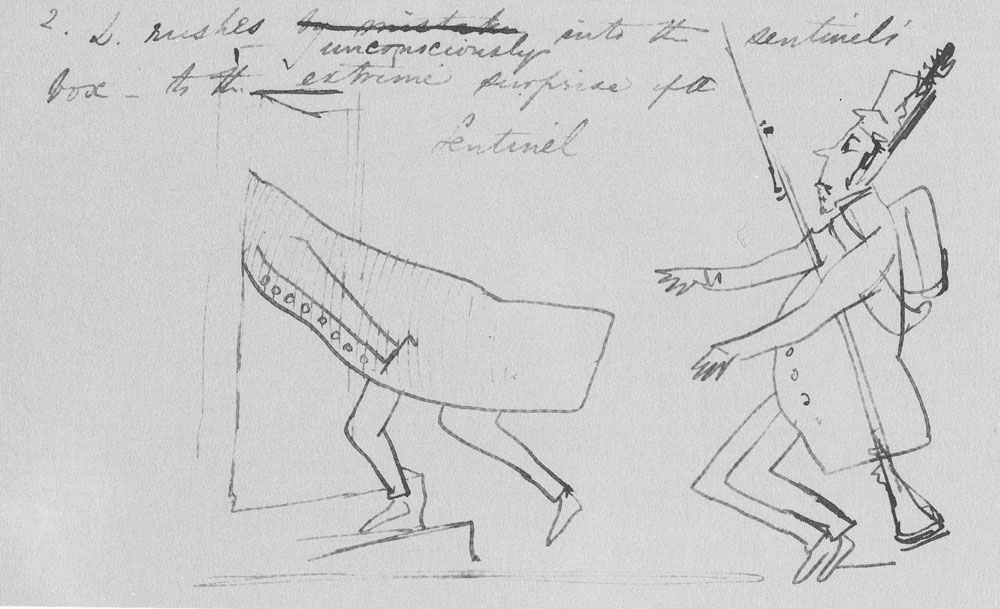 2. L. rushes by mistake into the sentinel's
unconsciously
box - to the extreme surprise of the
Sentinel